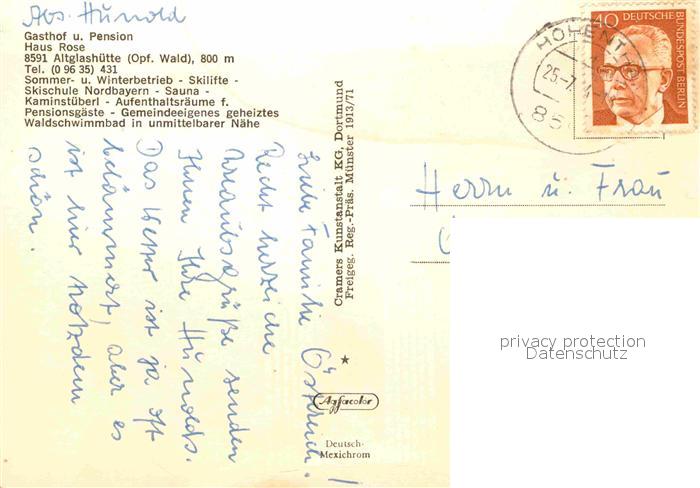 Abs. Hunold
Gasthof u. Pension
Haus Rose
8591 Altglashütte (Opf. Wald), 800 m
Tel. (0 96 35) 431
Sommer- u. Winterbetrieb - Skilifte -
Skischule Nordbayern - Sauna -
Kaminstüberl - Aufenthaltsräume f.
Pensionsgäste - Gemeindeeigenes geheiztes
Waldschwimmbad in unmittelbarer Nähe
Liebe Familie Österreich!
Recht herzliche
Urlaubsgrüße senden
Ihnen Ihre Hunolds.
Das Wetter ist ja oft
belämmert, aber es
ist hier trotzdem
schön.
Cramers Kunstanstalt KG, Dortmund
Freigeg. Reg.-Präs. Münster 1913/71
Agfacolor
Deutsch-
Mexichrom
40 DEUTSCHE
BUNDESPOST BERLIN
HOHENTH
25.-7.
85
Herrn u. Frau
privacy protection
Datenschutz